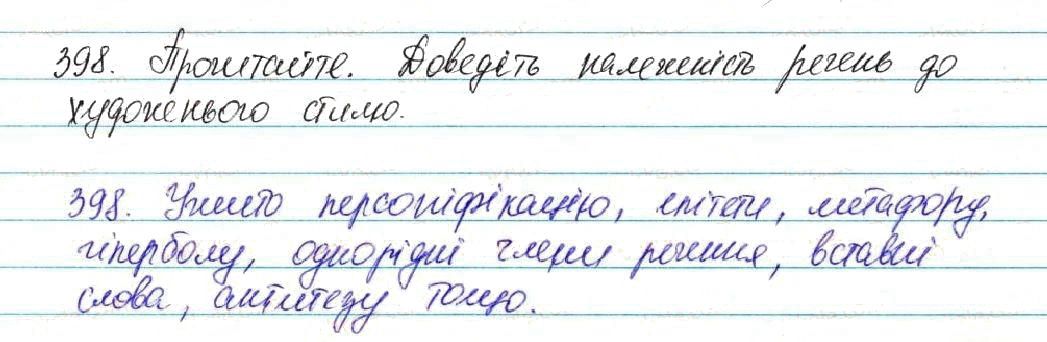 398. Прочитайте. Доведіть належність речень до
художнього стилю.
398. Ужито персоніфікацію, епітети, метафору,
гіперболу, однорідні члени речення, вставні
слова, антитезу тощо.